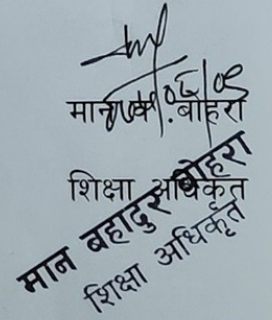 मान ब. बोहरा
शिक्षा अधिकृत
मान बहादुर बोहरा
शिक्षा अधिकृत